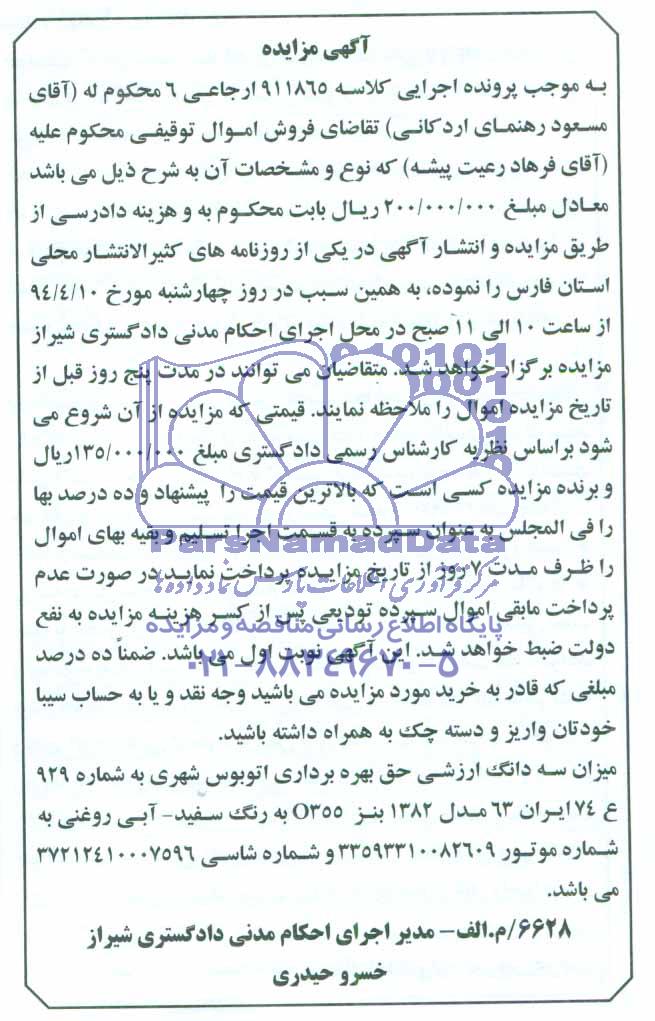 آگهی مزایده
به موجب پرونده اجرایی کلاسه ۹۱۱۸۶۵ ارجاعی ۶ محکوم له (آقای
مسعود رهنمای اردکانی) تقاضای فروش اموال توقیفی محکوم علیه
(آقای فرهاد رعیت پیشه) که نوع و مشخصات آن به شرح ذیل می باشد
معادل مبلغ ۲۰۰/۰۰۰/۰۰۰ ریال بابت محکوم به و هزینه دادرسی از
طریق مزایده و انتشار آگهی در یکی از روزنامه های کثیرالانتشار محلی
استان فارس را نموده، به همین سبب در روز چهارشنبه مورخ ۹۴/۴/۱۰
از ساعت ۱۰ الی ۱۱ صبح در محل اجرای احکام مدنی دادگستری شیراز
مزایده برگزار خواهد شد. متقاضیان می توانند در مدت پنج روز قبل از
تاریخ مزایده اموال را ملاحظه نمایند. قیمتی که مزایده از آن شروع می
شود براساس نظریه کارشناس رسمی دادگستری مبلغ ۱۳۵/۰۰۰/۰۰۰ریال
و برنده مزایده کسی است که بالاترین قیمت را پیشنهاد و ده درصد بها
را فی المجلس به عنوان سپرده به قسمت اجرا تسلیم و بقیه بهای اموال
ParsNamadData
را ظرف مدت ۷ روز از تاریخ مزایده پرداخت نماید در صورت عدم
مرکز فرآوری اطلاعات پارس نماد داده ها
پرداخت مابقی اموال سپرده تودیعی پس از کسر هزینه مزایده به نفع
پایگاه اطلاع رسانی مناقصه و مزایده
دولت ضبط خواهد شد. این آگهی نوبت اول می باشد. ضمناً ده درصد
۰۲۱-۸۸۳۴۹۶۷۰-۵
مبلغی که قادر به خرید مورد مزایده می باشید وجه نقد و یا به حساب سیبا
خودتان واریز و دسته چک به همراه داشته باشید.
میزان سه دانگ ارزشی حق بهره برداری اتوبوس شهری به شماره ۹۲۹
ع ۷۴ ایران ۶۳ مدل ۱۳۸۲ بنز O۳۵۵ به رنگ سفید- آبی روغنی به
شماره موتور ۳۳۵۹۳۳۱۰۰۸۲۶۰۹ و شماره شاسی ۳۷۲۱۲۴۱۰۰۰۷۵۹۶
می باشد.
۶۶۲۸/م.الف- مدیر اجرای احکام مدنی دادگستری شیراز
خسرو حیدری